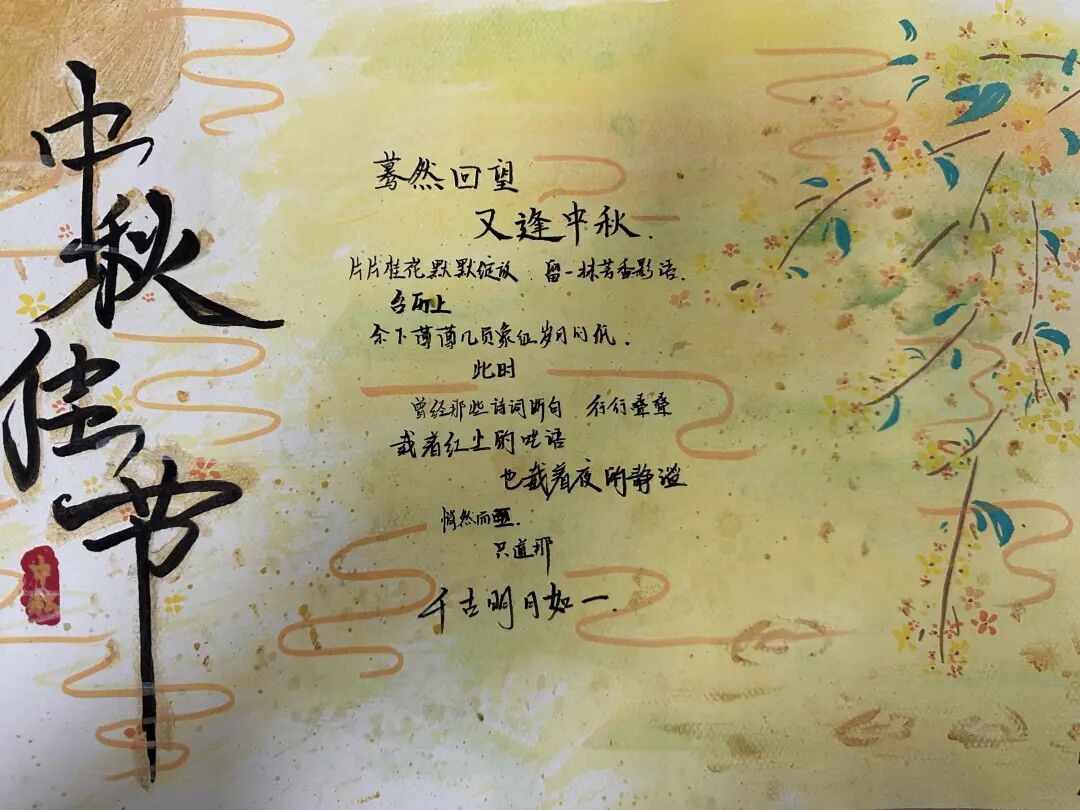 中秋佳节
中秋
蓦然回望
又逢中秋.
片片桂花默默绽放 留一抹芳香影语.
台面上
余下薄薄几页象征岁月的纸.
此时
曾经那些诗词断句 行行叠叠
载着红尘的呓语
也载着夜的静谧
悄然而至.
只道那
千古明月如一.